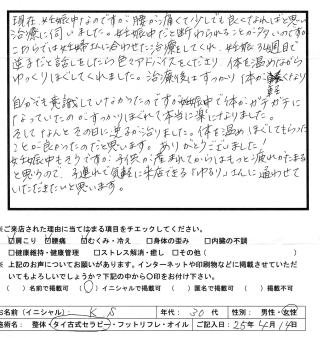 現在、妊娠中なのですが、腰が痛くて少しでも良くなればと思い
治療に伺いました。妊娠中だと断わられることが多いのですが
こちらでは妊婦さんに合わせた治療をしてくれ、妊娠34週目で
逆子だと話をしたら色々アドバイスをくださり、体を温めながら
ゆっくりほぐしてくれました。治療後はすっかり体が軽くなり
自分でも意識していなかったのですが妊娠中で体がガチガチに
なっていたのがすっかりほぐれて本当に楽になりました。
そしてなんとその日に逆子が治りました。体を温めほぐしてもらった
ことが良かったのだと思います。ありがとうございました!
妊娠中もそうですが、子供が産まれてからはもっと疲れがたまる
と思うので、子連れで気軽に来店できる「ゆるり」さんに通わせて
いただきたいと思います。
※ご来店された理由に当てはまる項目をチェックしてください。
☑肩こり ☑腰痛 ☑むくみ・冷え □身体の歪み □内臓の不調
□健康維持・健康管理 □ストレス解消・癒し □その他( )
※ 上記のお声についてお願いがあります。インターネットや印刷物などに掲載させていただ
いてもよろしいでしょうか?下記の中から〇印をお付け下さい。
( )名前で掲載可 (〇)イニシャルで掲載可 ( )匿名で掲載可 ( )掲載不可
お名前(イニシャル) K S 年代:30代 性別: 男性・女性
施術名: 整体・タイ古式セラピー・フットリフレ・オイル ご記入日:25年4月14日